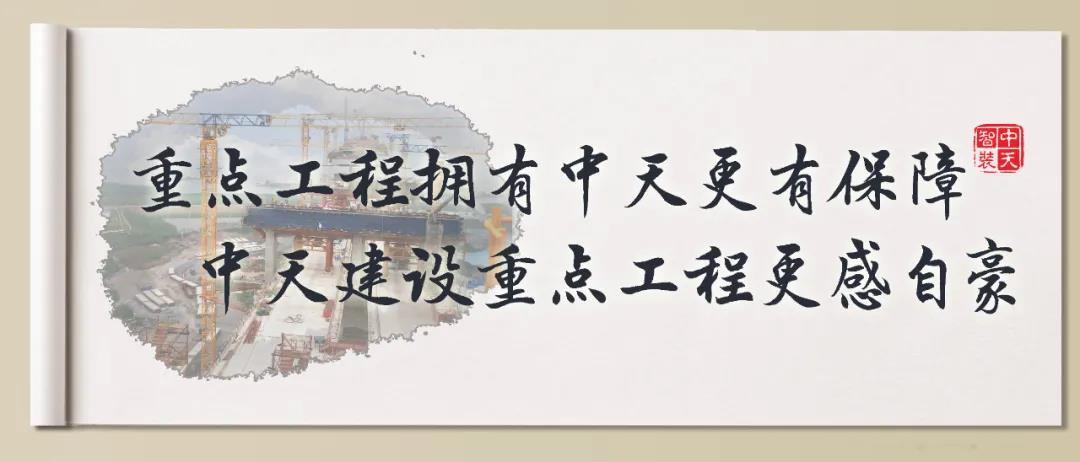 重点工程拥有中天更有保障
中天建设重点工程更感自豪
中天智装